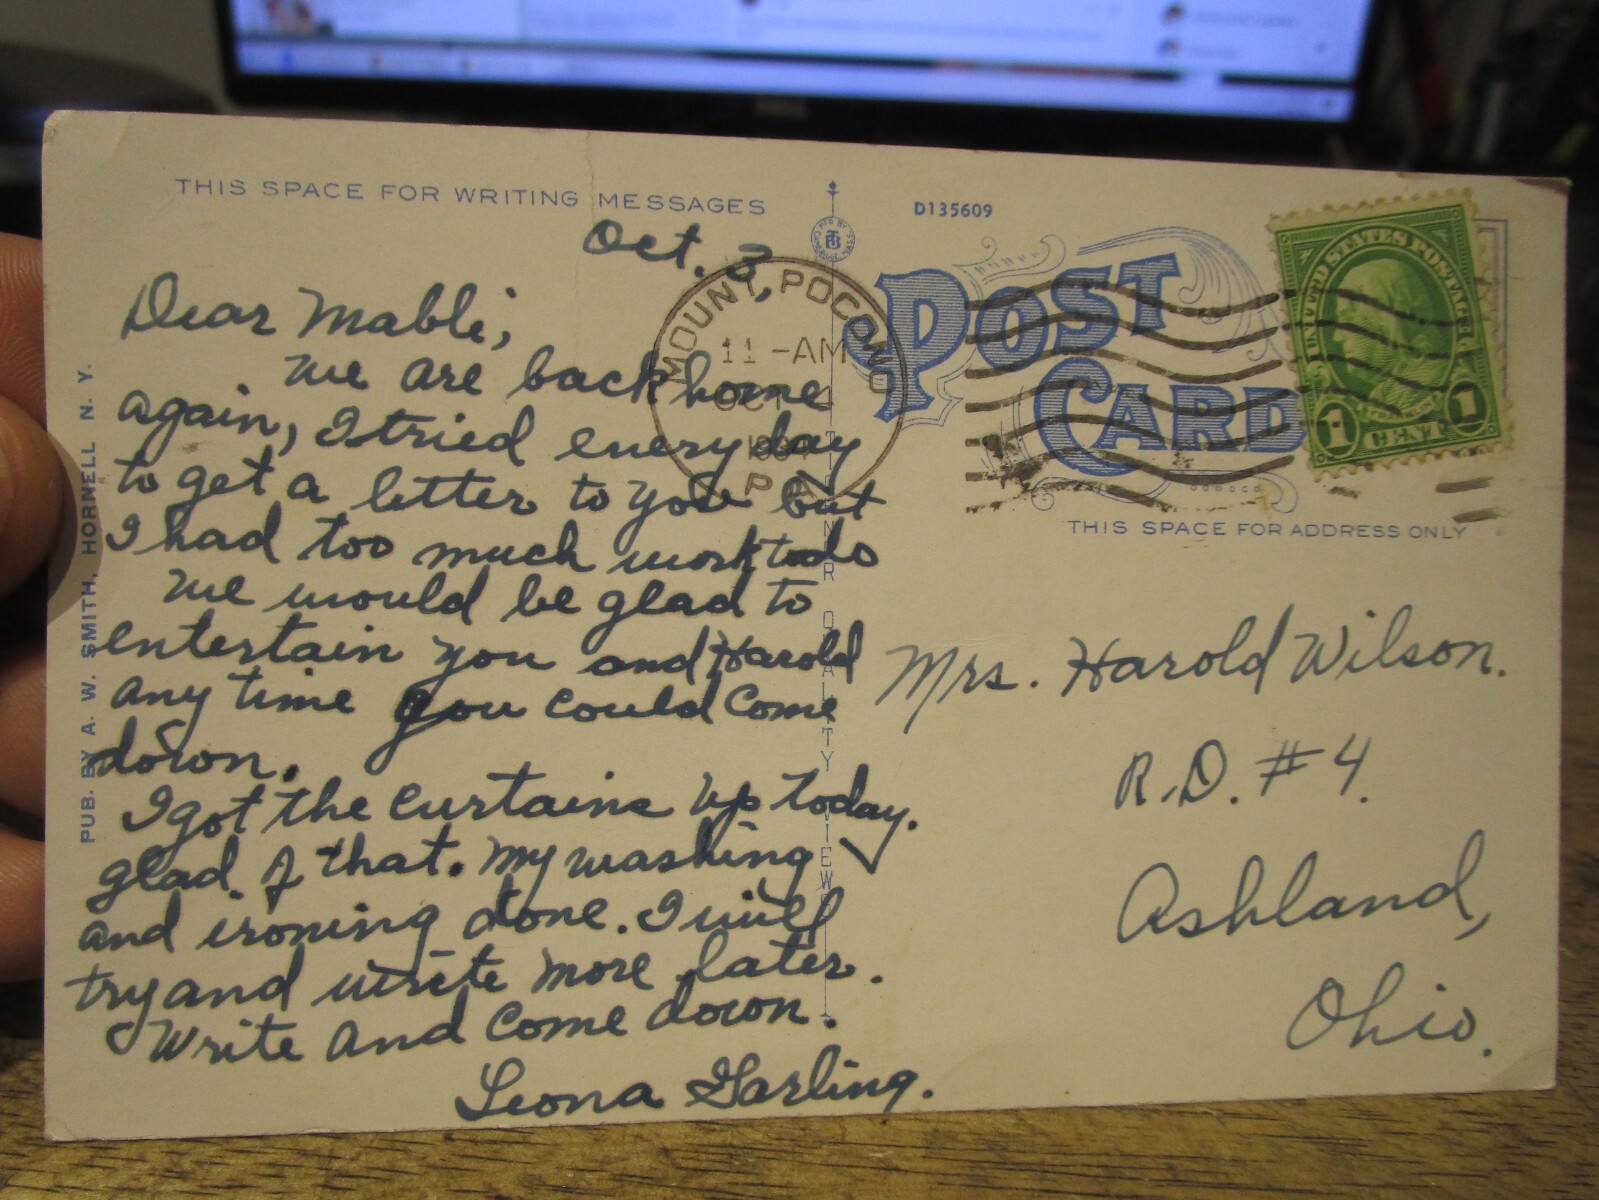 THIS SPACE FOR WRITING MESSAGES
Oct. 3,
Dear Mable,
We are back home
again, I tried every day
to get a letter to you but
I had too much work to do
We would be glad to
entertain you and Harold
any time you could come
down.
I got the curtains up today.
glad of that. My washing
and ironing done. I will
try and write more later.
Write and come down.
Leona Garling.
PUB. BY A. W. SMITH, HORNELL N. Y.
MOUNT POCONO
11 -AM
OCT
PA
MF'D BY
CTB
CAMBRIDGE, MASS.
D135609
POST
CARD
UNITED STATES POSTAGE
FRANKLIN
1 CENT 1
THIS SPACE FOR ADDRESS ONLY
Mrs. Harold Wilson.
R.D. #4.
Ashland,
Ohio.
DELL